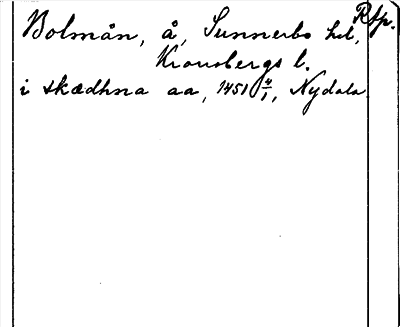 Bolmån, å, Sunnerbo hd, Rtp.
Kronobergs l.
i skædhna aa, 1451 4/1, Nydala.